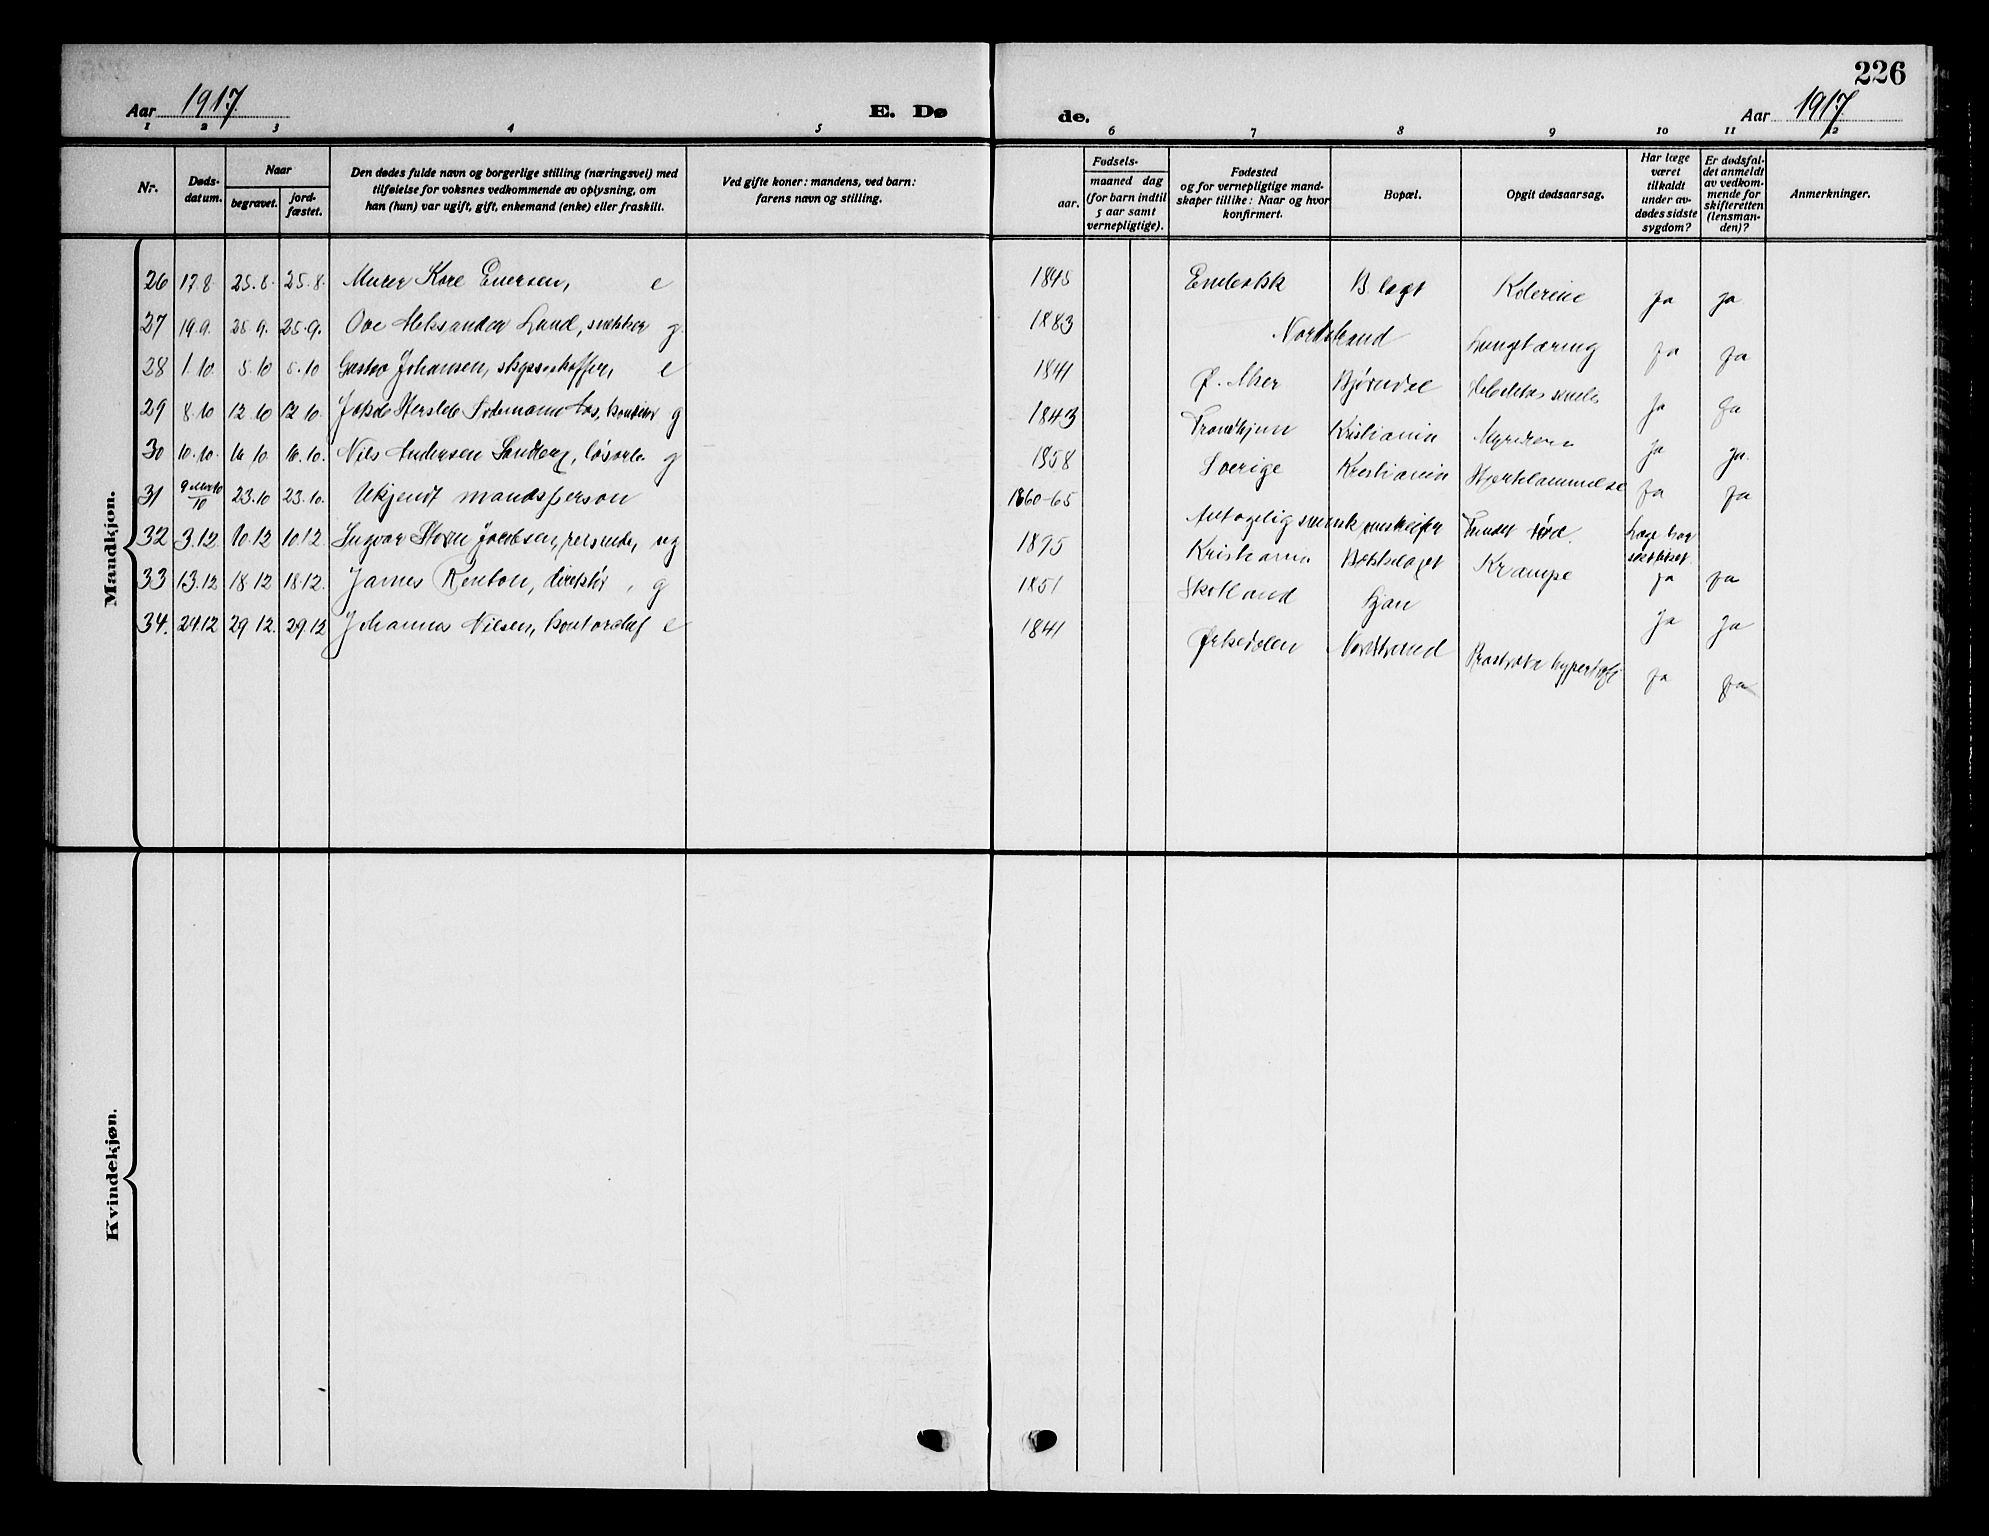 226
Aar 1917.
E. Dø
de.
Aar 1917.
1 2 3 4 5 6 7 8 9 10 11 12
Nr.
Døds-
datum.
Naar
begravet.
jord-
fæstet.
Den dødes fulde navn og borgerlige stilling (næringsvei) med
tilføielse for voksnes vedkommende av oplysning, om
han (hun) var ugift, gift, enkemand (enke) eller fraskilt.
Ved gifte koner: mandens, ved barn:
farens navn og stilling.
Fødsels-
aar.
maaned dag
(for barn indtil
5 aar samt
vernepligtige).
Fødested
og for vernepligtige mand-
skaper tillike: Naar og hvor
konfirmert.
Bopæl.
Opgit dødsaarsag.
Har læge
været
tilkaldt
under av-
dødes sidste
sygdom?
Er dødsfal-
det anmeldt
av vedkom-
mende for
skifteretten
(lensman-
den)?
Anmerkninger.
Mandkjøn.
26 17.8. 25.8. 25.8. Murer Kore e 1845 Ja ja
27 19.9. 25.9. 25.9. Ove Aleksander Lund, snekker g 1883 Nordstrand Lungetæring ja ja
28 1.10. 5.10 5.10 Gustav Johansen, e 1841 Ø. Aker Bjørndal ja ja
29 8.10 12.10 12.10. g 1843 Trondhjem Kristiania ja ja
30 10.10. 16.10 16.10. Nils Andersen Sandberg, g 1858 Sverige Kristiania Hjertelammelse ja ja
31 23.10 23.10. Ukjendt mandsperson 1860-65 Antagelig svensk Fundet død.
32 3.12. 10.12 10.12. Ingvar Storm Jacobsen, reisende, ug 1895 Kristiania Krampe ja ja
33 13.12 18.12 18.12. James Renton, direktør, g 1851 Skotland Ljan ja ja
34. 24.12 29.12. 29.12 Johannes Nilsen, e 1841 Ørkedalen Nordstrand Prostata hypertrofi ja ja
Kvindekjøn.